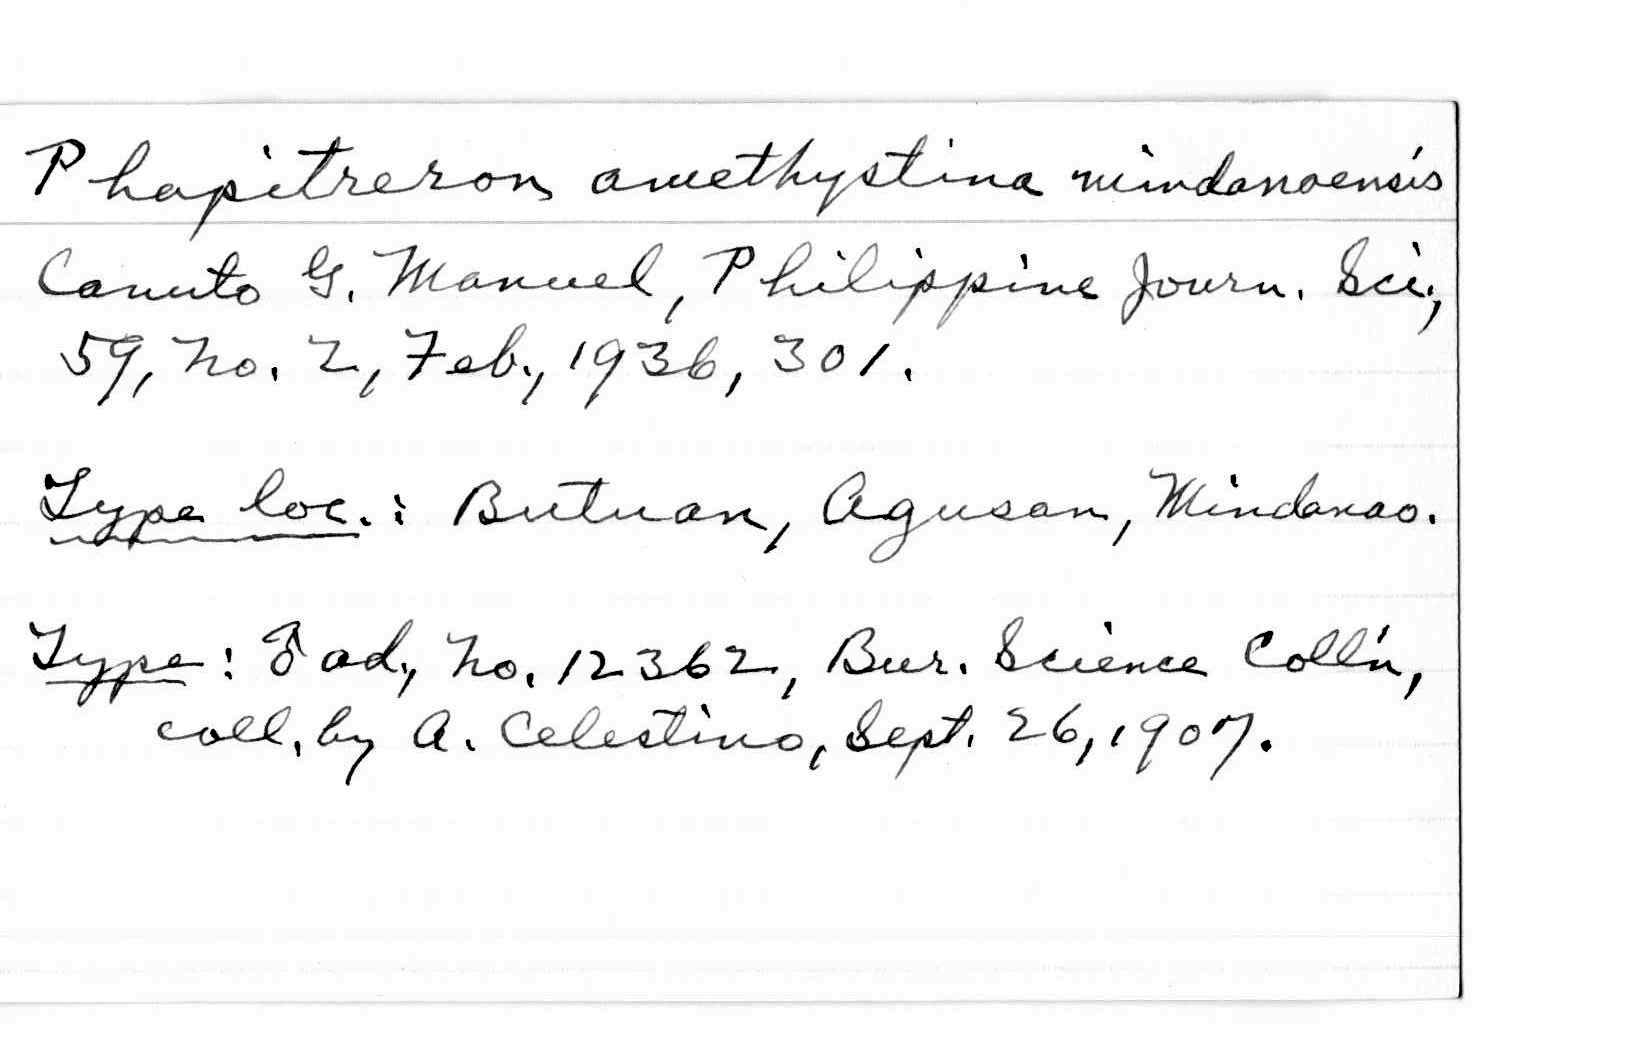 Phapitreron amethystina mindanaoensis
Canuto G. Manuel, Philippine Journ. Sci.,
59, No. 2, Feb., 1936, 301.
Type loc.: Butuan, Agusan, Mindanao.
Type: ♂ ad., No. 12362, Bur. Science Coll'n,
coll. by A. Celestino, Sept. 26, 1907.